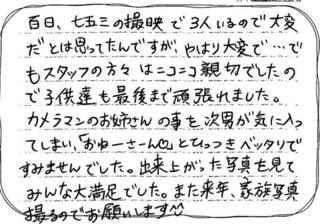 百日、七五三の撮映で3人いるので大変
だとは思ってたんですが、やはり大変で…で
もスタッフの方々はニコニコ親切でしたの
で子供達も最後まで頑張れました。
カメラマンのお姉さんの事を次男が気に入っ
てしまい、「おねーさーん♡」とひっつきベッタリで
すみませんでした。出来上がった写真を見て
みんな大満足でした。また来年、家族写真
撮るのでお願いします